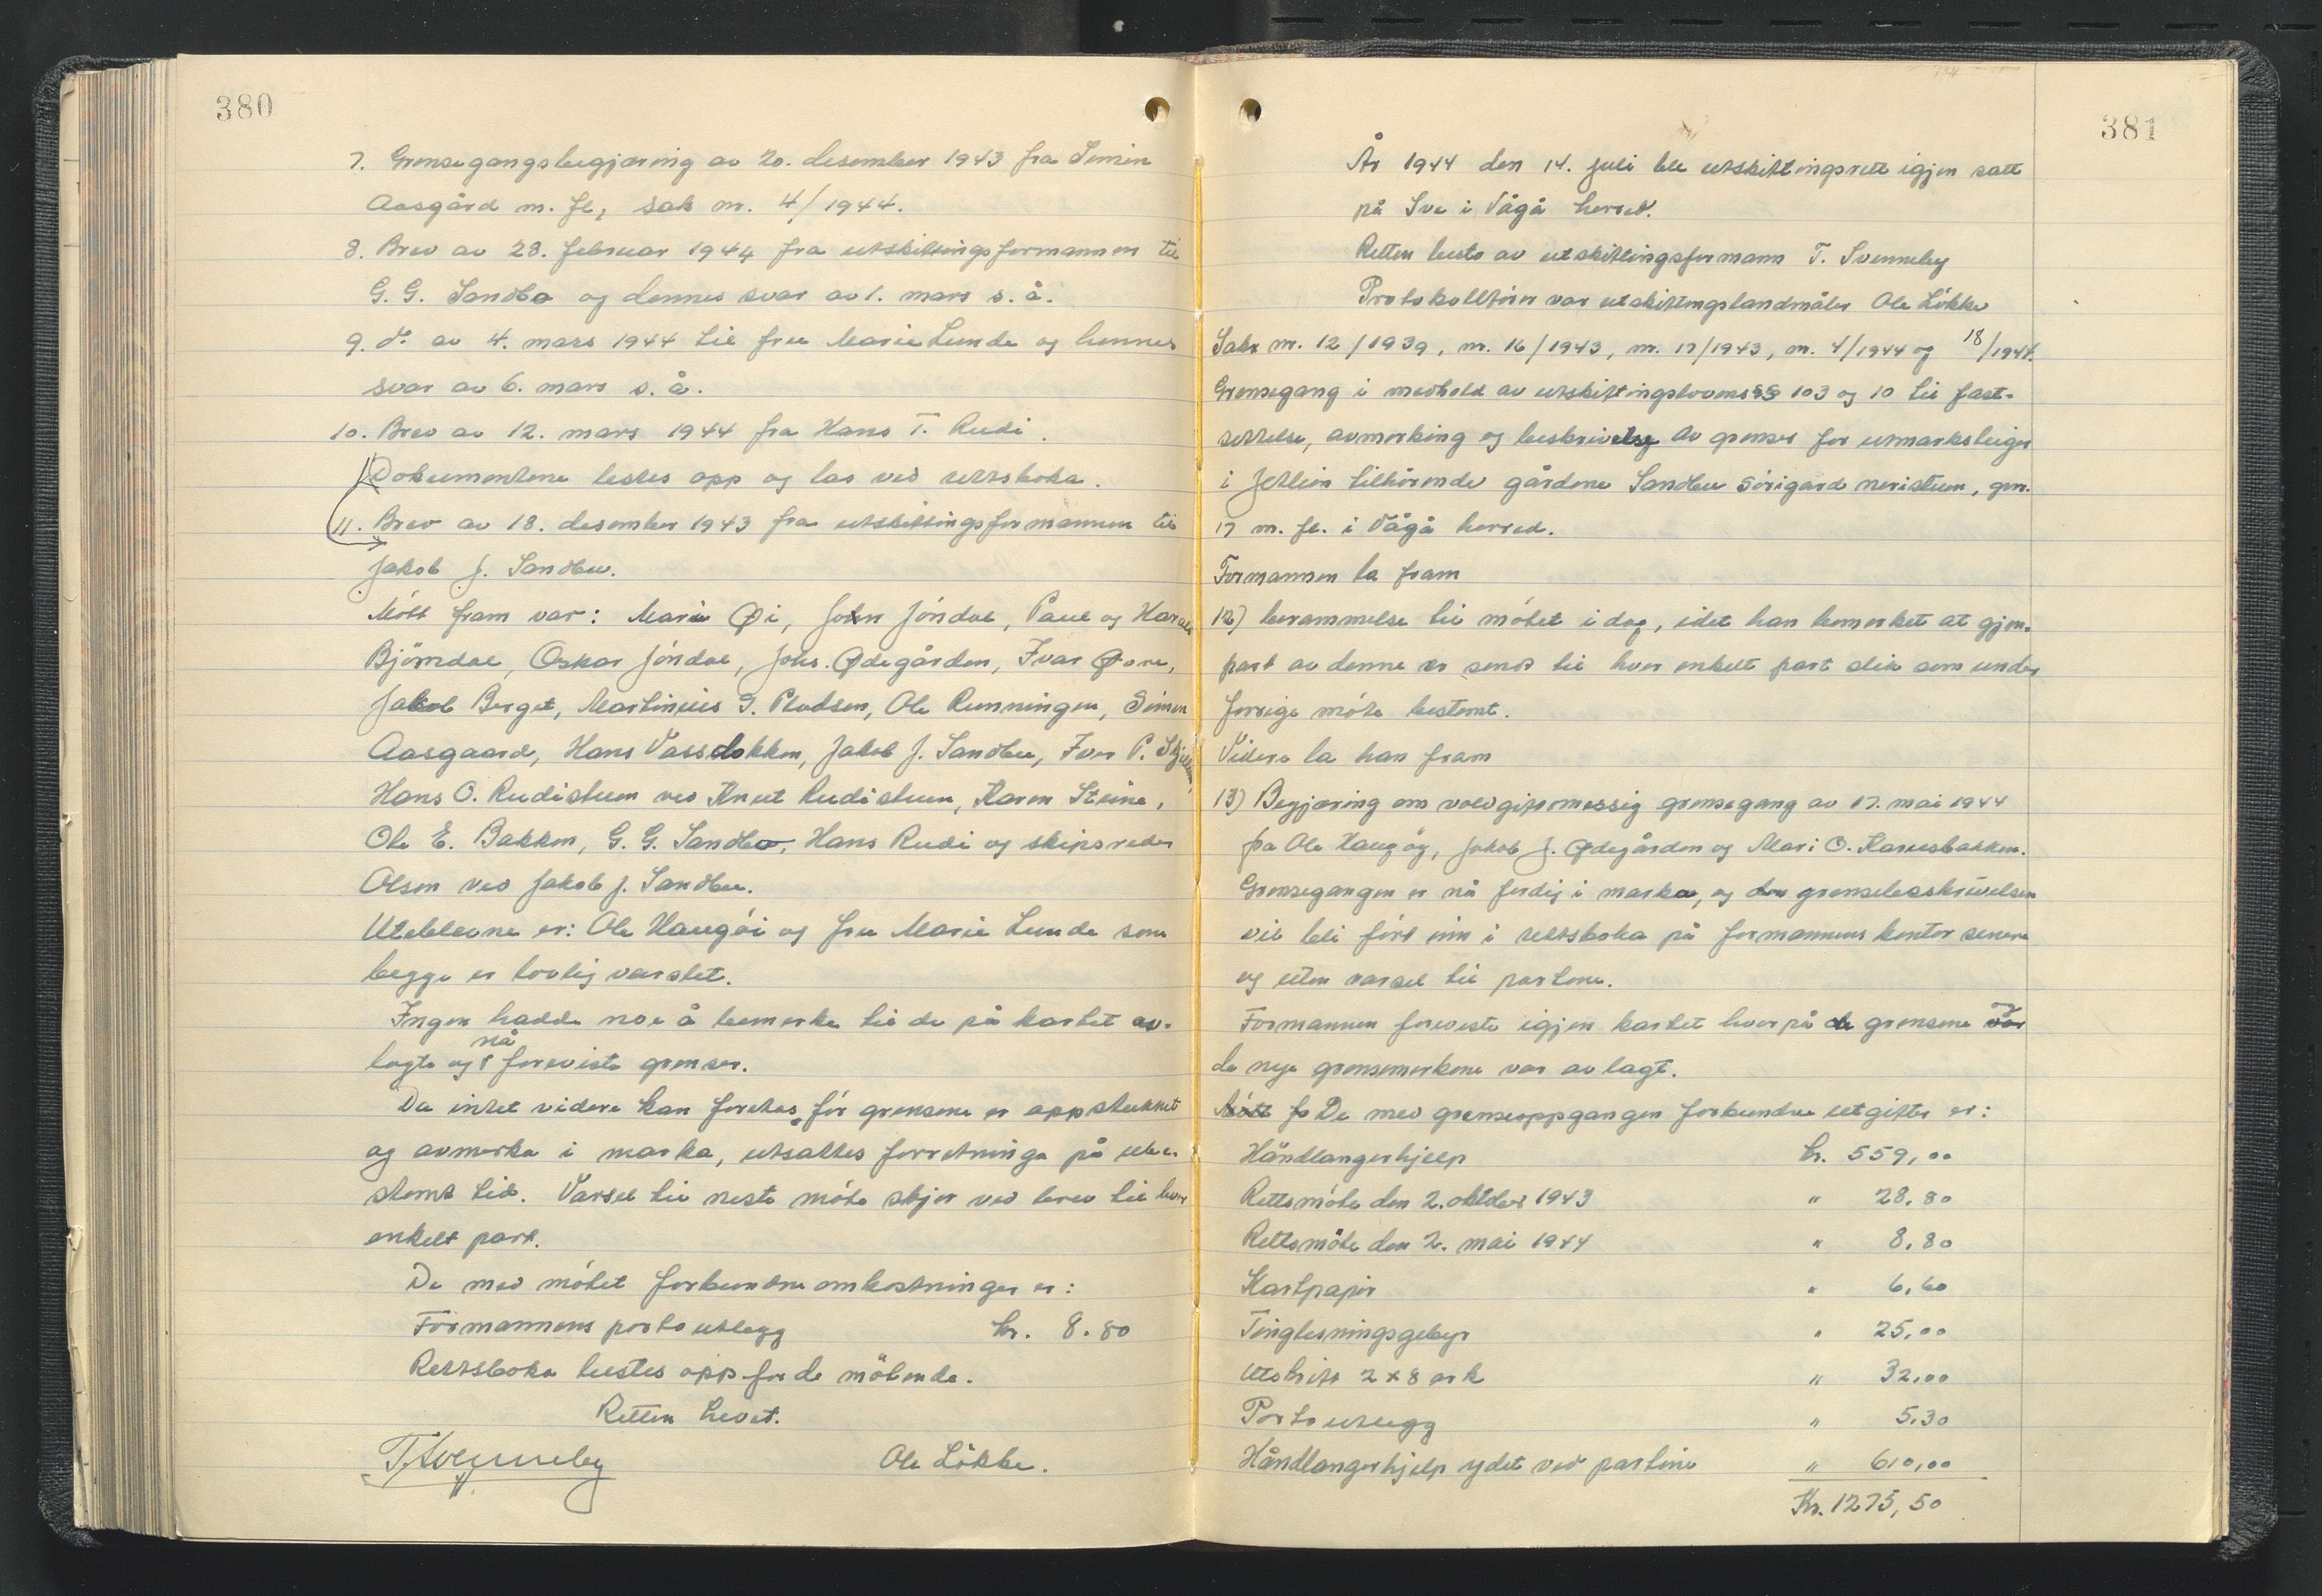 380
7. Grensegangsbegjæring av 20. desember 1943 fra Simen
Aasgård m. fl, sak nr. 4/1944.
8. Brev av 28. februar 1944 fra utskiftingsformannen til
G. G. Sandbo og dennes svar av 1. mars s. å.
9. do av 4. mars 1944 til fru Marie Lunde og hennes
svar av 6. mars s. å.
10. Brev av 12. mars 1944 fra Hans T. Rudi.
Dokumentene lestes opp og las ved rettsboka.
11. Brev av 18. desember 1943 fra utskiftingsformannen til
Jakob J. Sandbu.
Mött fram var: Mari Øi, John Jóndal, Paul og Harald
Björndal, Oskar Jóndal, Johs. Ødegården, Ivar Øvre,
Jakob Berget, Martinius I. Pladsen, Ole Runningen, Simen
Aasgaard, Hans Vassdokken, Jakob J. Sandbu, Iver P.
Hans O. Rudistuen ved Knut Rudistuen, Karen Steine,
Ole E. Bakken, G. G. Sandbo, Hans Rudi og skipsreder
Olsen ved Jakob J. Sandbu.
Uteblevne er: Ole Haugöi og fru Marie Lunde som
begge er lovlig varslet.
Ingen hadde noe å bemerke til de på kartet av-
lagte og nå foreviste grenser.
Da intet videre kan foretas för grensene er oppstukket
og avmerka i marka, utsattes forretninga på ube-
stemt tid. Varsel til neste möte skjer ved brev til hver
enkelt part.
De med mötet forbundne omkostninger er:
Formannens porto utlegg kr. 8.80
Rettsboka lestes opp for de mötende.
Retten hevet.
T. Svenneby Ole Lökke.
381
År 1944 den 14. juli ble utskiftingsrett igjen satt
på Sve i Vågå herred.
Retten besto av utskiftingsformann T. Svenneby
Protokollförer var utskiftingslandmåler Ole Lökke
Sakr nr. 12/1939, nr. 16/1943, nr. 17/1943, nr. 4/1944 og 18/1944.
Grensegang i medhold av utskiftingslovens §§ 103 og 10 til fast-
settelse, avmerking og beskrivelse av grenser for utmarksteiger
i Jetlien tilhörende gårdene Sandbu sörigard neristuen, gnr.
17 m. fl. i Vågå herred.
Formannen la fram
12) berammelse til mötet i dag, idet han bemerket at gjen-
part av denne er sendt til hver enkelt part slik som under
forrige möte bestemt.
Videre la han fram
13) Begjæring om voldgiftsmessig grensegang av 17. mai 1944
fra Ole Haugöy, Jakob J. Ødegården og Mari O. Karusbakken.
Grensegangen er nå ferdig i marka, og den grensebeskrivelsen
vil bli fört inn i rettsboka på formannens kontor senere
og uten varsel til partene.
Formannen foreviste igjen kartet hvorpå de grensene var
de nye grensemerkene var av lagt.
Mött fr De med grenseoppgangen forbundne utgifter er:
Håndlangerhjelp kr. 559,00
Rettsmöte den 2. oktober 1943 " 28.80
Rettsmöte den 2. mai 1944 " 8.80
Kartpapir " 6,60
Tinglesningsgebyr " 25,00
Utskrift 2 x 8 ark " 32,00
Porto utlegg " 5.30
Håndlangerhjelp ydet ved partene " 610,00
Kr. 1275,50